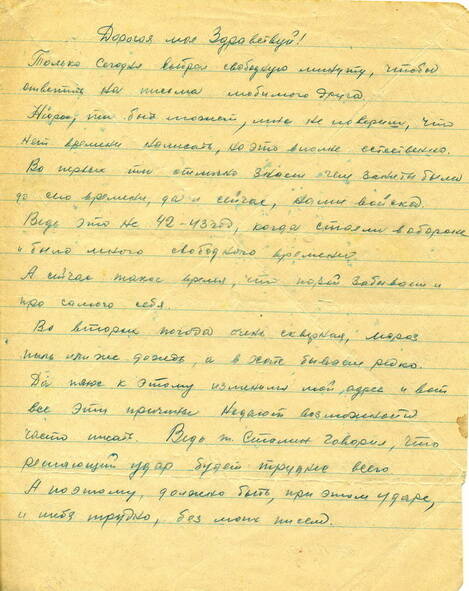 Дорогая моя Здравствуй!
Только сегодня выбрал свободную минуту, чтобы
ответить на письма любимого друга.
Нюра, ты быть может, мне не поверишь, что
нет времени написать, но это вполне естественно.
Во первых ты отлично знаешь чем заняты были
до сего времени, да и сейчас, наши войска.
Ведь это не 42-43 год, когда стояли в обороне
и было много свободного времени
А сейчас такое время, что порой забываем и
про самого себя.
Во вторых погода очень скверная, мороз
пыль или же дождь, а в хате бываем редко.
Да плюс к этому изменился мой адрес и вот
все эти причины не дают возможности
часто писать. Ведь т. Сталин говорил, что
решающий удар будет труднее всего
А поэтому, должно быть, при этом ударе,
и тебе трудно, без моих писем.